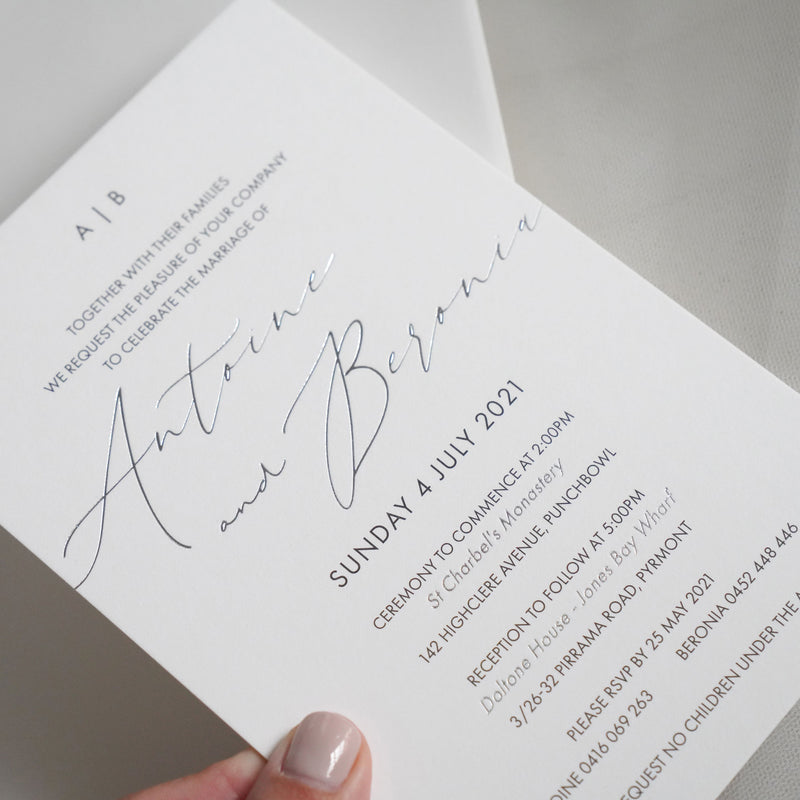 A | B
TOGETHER WITH THEIR FAMILIES
WE REQUEST THE PLEASURE OF YOUR COMPANY
TO CELEBRATE THE MARRIAGE OF
Antoine
and Beronia
SUNDAY 4 JULY 2021
CEREMONY TO COMMENCE AT 2:00PM
St Charbel's Monastery
142 HIGHCLERE AVENUE, PUNCHBOWL
RECEPTION TO FOLLOW AT 5:00PM
Doltone House - Jones Bay Wharf
3/26-32 PIRRAMA ROAD, PYRMONT
PLEASE RSVP BY 25 MAY 2021
0416 069 263 BERONIA 0452 448 446
NO CHILDREN UNDER THE